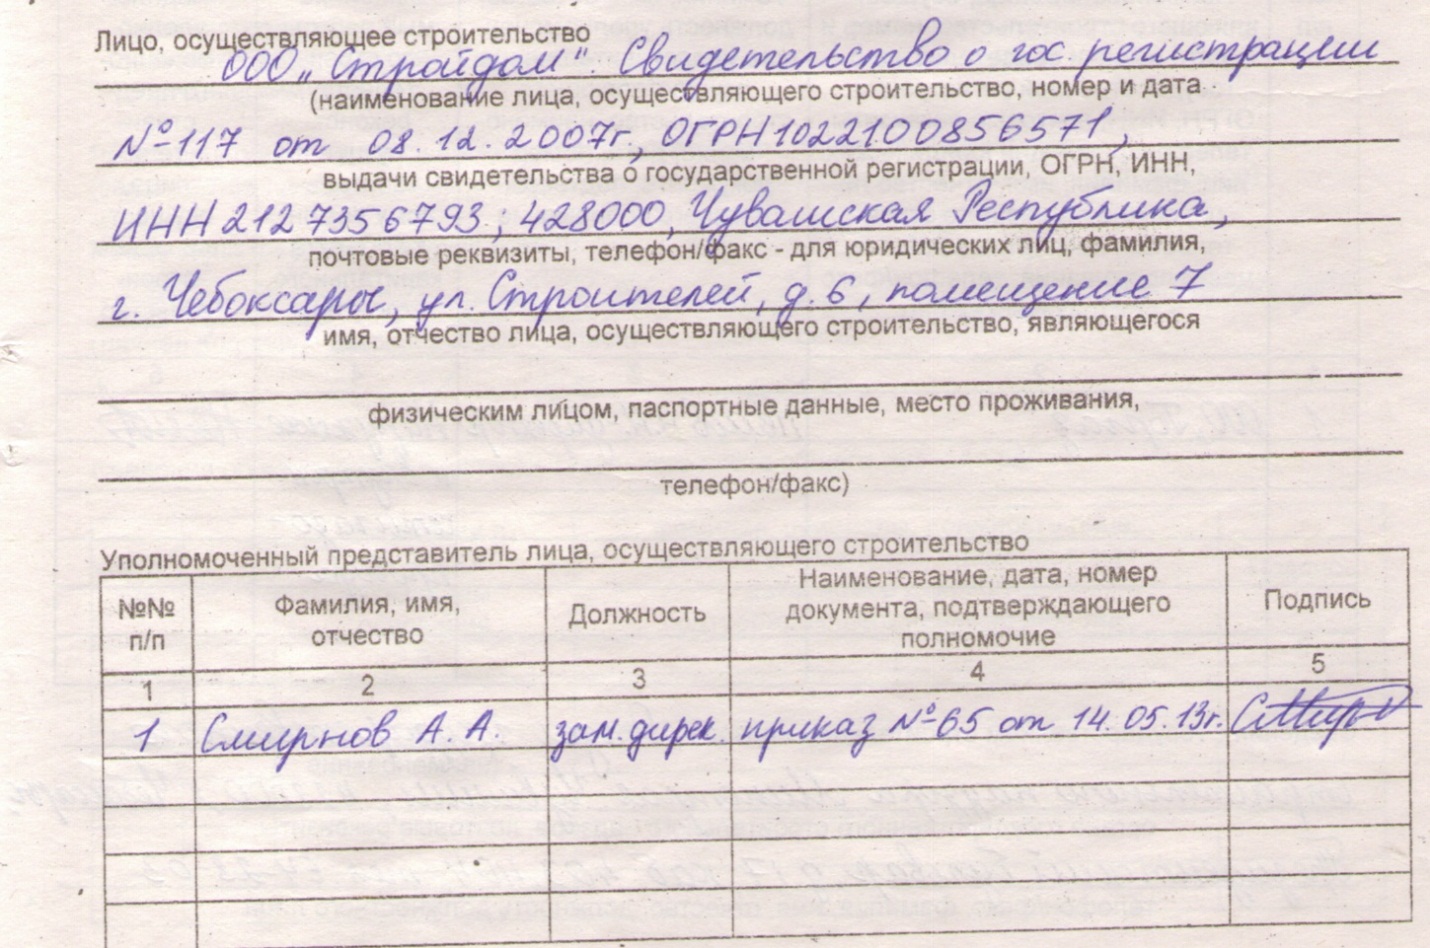 Лицо, осуществляющее строительство
ООО „Стройдом“. Свидетельство о гос. регистрации
(наименование лица, осуществляющего строительство, номер и дата
№117 от 08.12.2007г., ОГРН1022100856571,
выдачи свидетельства о государственной регистрации, ОГРН, ИНН,
ИНН2127356793, 428000, Чувашская Республика,
почтовые реквизиты, телефон/факс - для юридических лиц, фамилия,
г. Чебоксары, ул. Строителей, д. 6, помещение 7
имя, отчество лица, осуществляющего строительство, являющегося
физическим лицом, паспортные данные, место проживания,
телефон/факс)
Уполномоченный представитель лица, осуществляющего строительство
№№ п/п
Фамилия, имя, отчество
Должность
Наименование, дата, номер документа, подтверждающего полномочие
Подпись
1 2 3 4 5
1 Смирнов А. А. зам. дирек. приказ №65 от 14.05.13г.